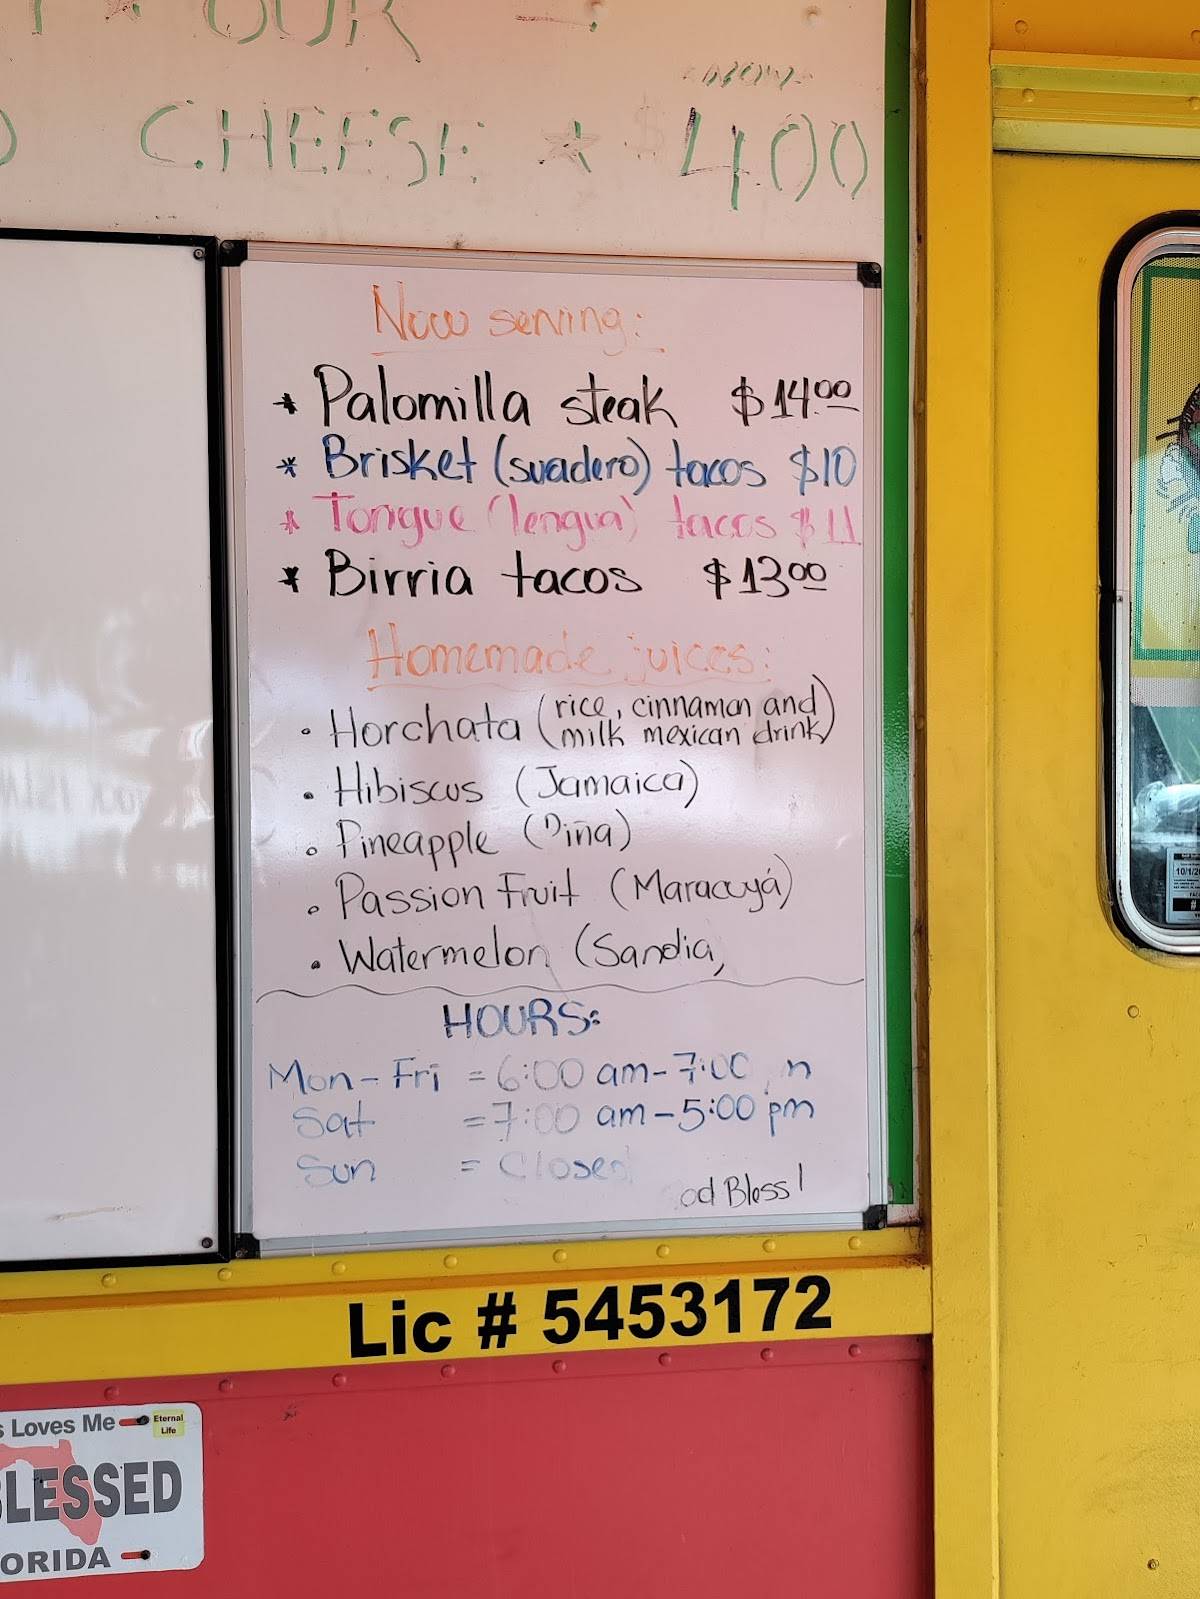 OUR
CHEESE * $4.00
Now serving:
* Palomilla steak $14.00
* Brisket (suadero) tacos $10
* Tongue (lengua) tacos $11
* Birria tacos $13.00
Homemade juices:
• Horchata (rice, cinnamon and
milk mexican drink)
• Hibiscus (Jamaica)
• Pineapple (Piña)
• Passion Fruit (Maracuyá)
• Watermelon (Sandia,
HOURS:
Mon - Fri = 6:00 am - 7:00
Sat = 7:00 am - 5:00 pm
Sun = Closed
od Bless!
Lic # 5453172
s Loves Me
Eternal
Life
BLESSED
ORIDA
10/1/20